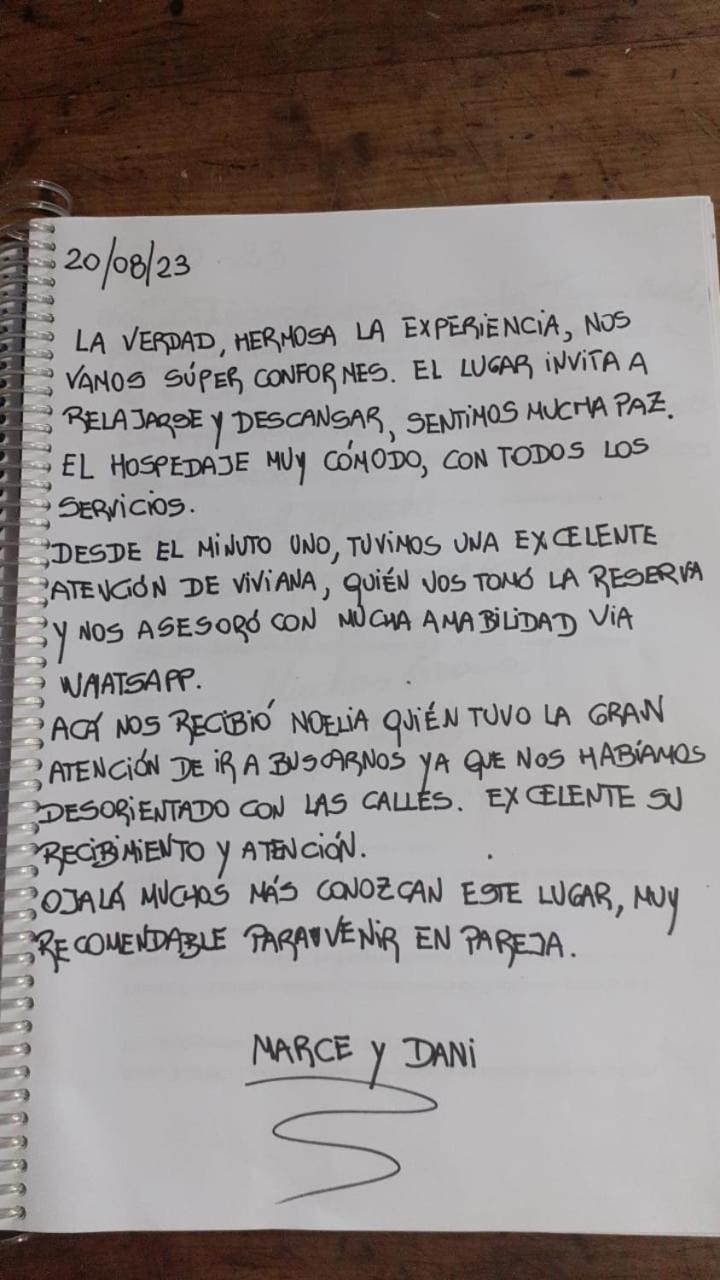 20/08/23
LA VERDAD, HERMOSA LA EXPERIENCIA, NOS
VAMOS SÚPER CONFORMES. EL LUGAR INVITA A
RELAJARSE Y DESCANSAR, SENTIMOS MUCHA PAZ.
EL HOSPEDAJE MUY CÓMODO, CON TODOS LOS
SERVICIOS.
DESDE EL MINUTO UNO, TUVIMOS UNA EXCELENTE
ATENCIÓN DE VIVIANA, QUIÉN NOS TOMÓ LA RESERVA
Y NOS ASESORÓ CON MUCHA AMABILIDAD VIA
WHATSAPP.
ACÁ NOS RECIBIÓ NOELIA QUIÉN TUVO LA GRAN
ATENCIÓN DE IR A BUSCARNOS YA QUE NOS HABÍAMOS
DESORIENTADO CON LAS CALLES. EXCELENTE SU
RECIBIMIENTO Y ATENCIÓN.
OJALÁ MUCHOS MÁS CONOZCAN ESTE LUGAR, MUY
RECOMENDABLE PARA VENIR EN PAREJA.
MARCE Y DANI